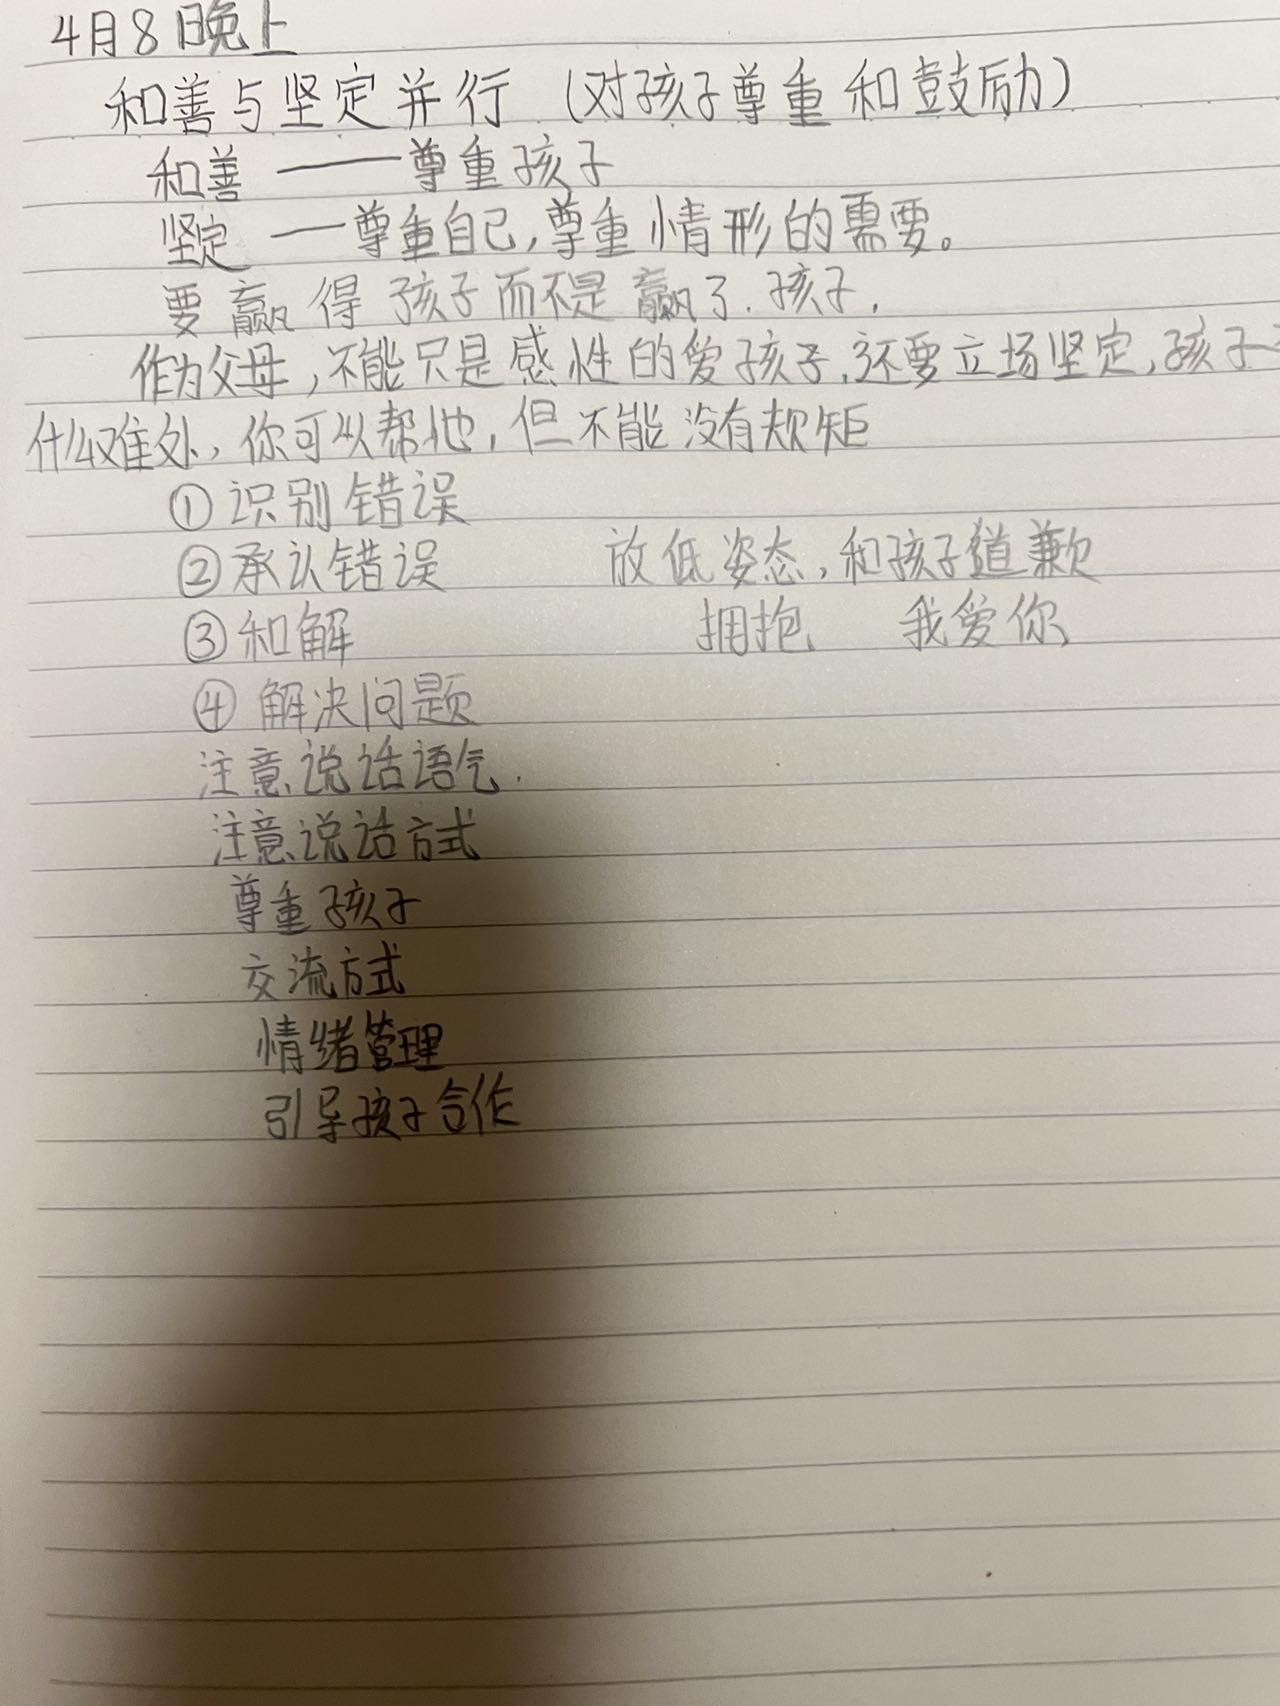 4月8日晚上
和善与坚定并行（对孩子尊重和鼓励）
和善——尊重孩子
坚定—尊重自己，尊重情形的需要。
要赢得孩子而不是赢了.孩子.
作为父母，不能只是感性的爱孩子.还要立场坚定，孩子
什么难处，你可以帮他，但不能没有规矩
①识别错误
②承认错误 放低姿态，和孩子道歉
③和解 拥抱 我爱你
④解决问题
注意说话语气.
注意说话方式
尊重孩子
交流方式
情绪管理
引导孩子合作